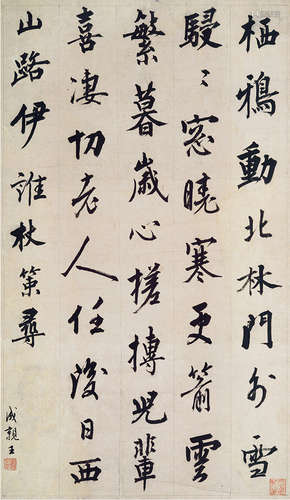 栖鴉動北林門外雪
駸〻窓曉寒更箭雲
繁暮歲心搓摶児輩
喜凄切老人任後日西
山路伊誰杖策尋
成親王